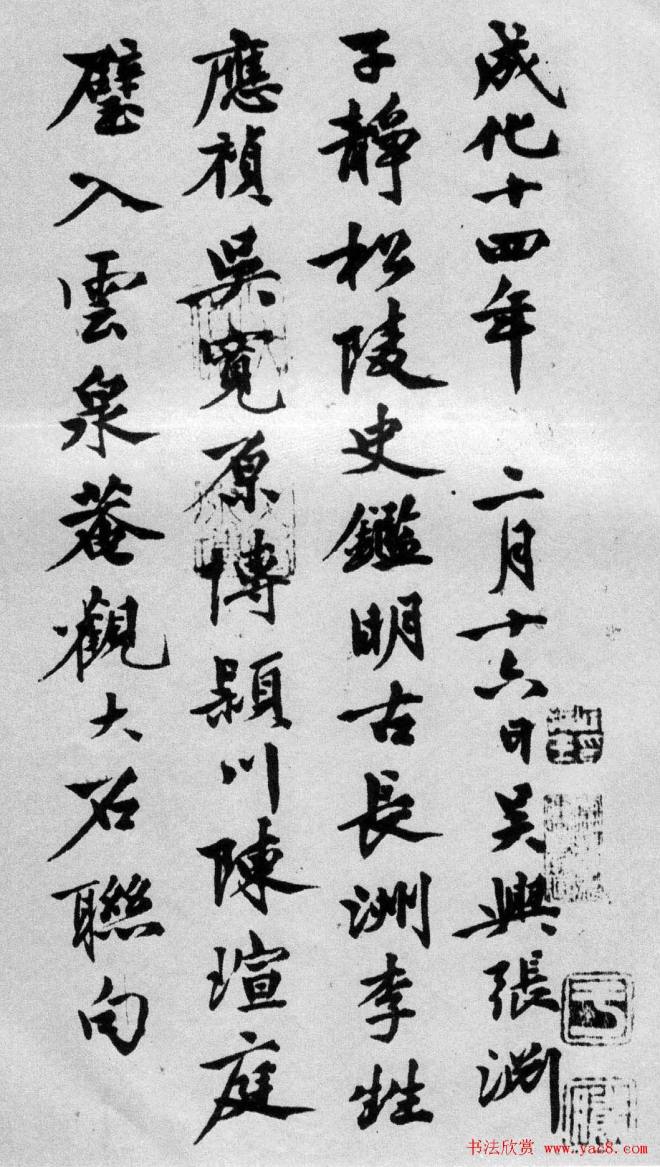 成化十四年 二月十六日吳興張淵
子靜松陵史鑑明古長洲李甡
應禎吳寬原博潁川陳瑄庭
璧入雲泉菴觀大石聯句
书法欣赏 www.yac8.com